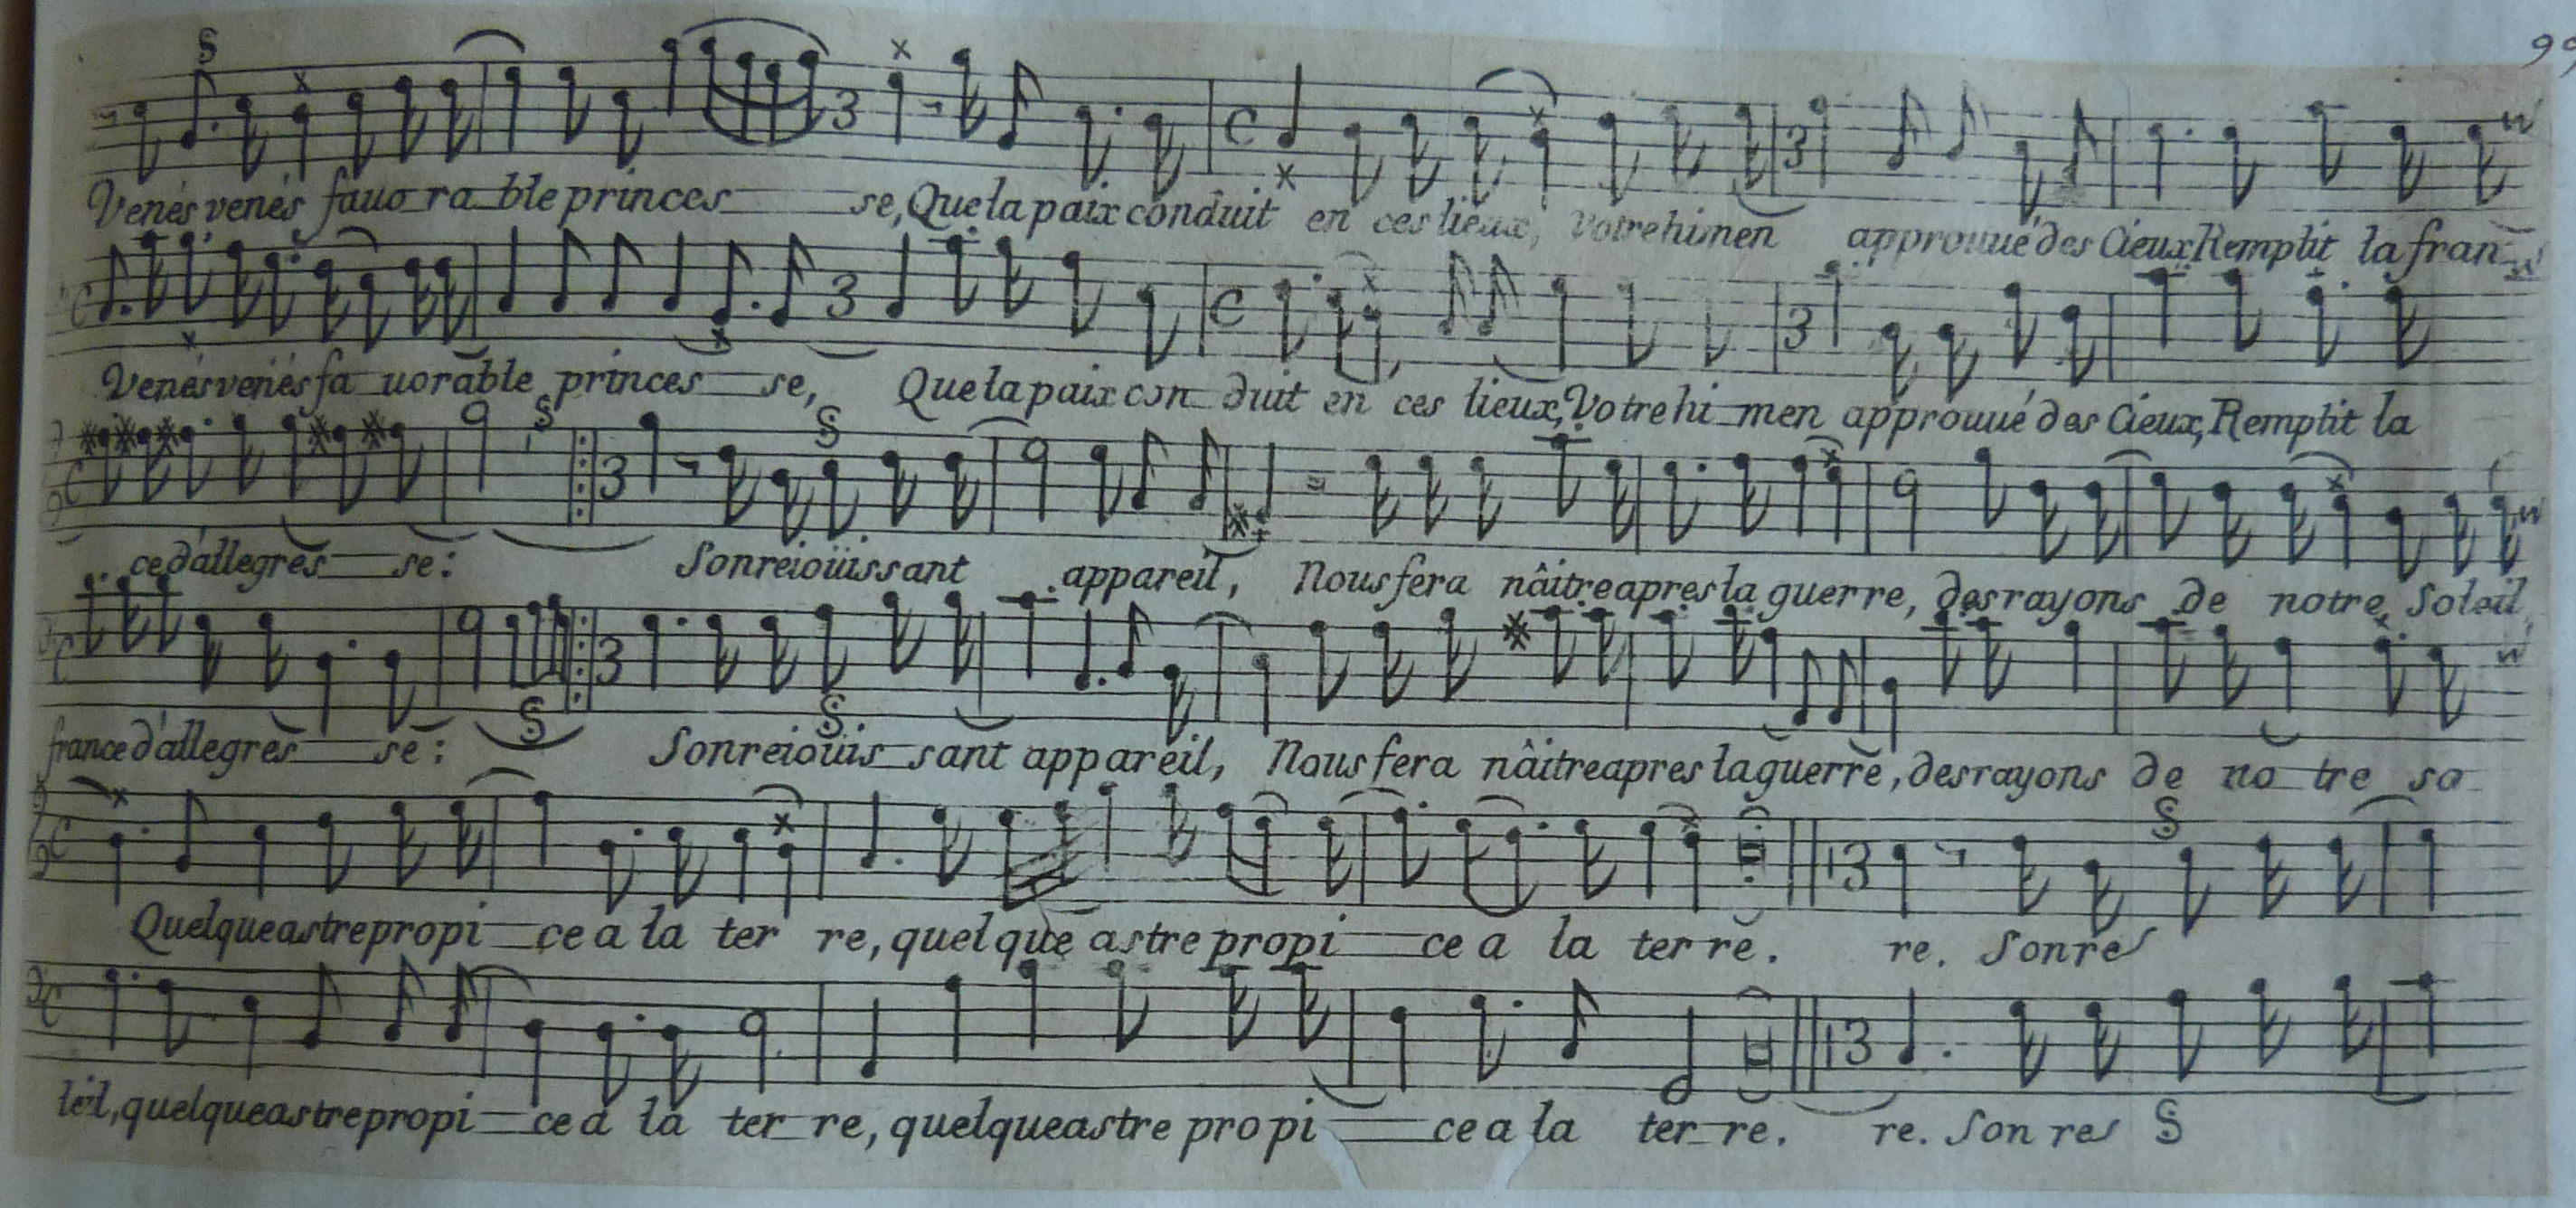 99
Venés venés fauo_ra_ble princes___se, Que la paix conduit en ces lieux, Votre himen approuué des Cieux, Remplit la fran_
Venés venés fa_uorable princes__se, Que la paix con_duit en ces lieux, Votre hi_men approuué des Cieux, Remplit la
ce d'allegres__se: Son reioüissant appareil, Nous fera nâitre apres la guerre, des rayons de notre Soleil,
france d'allegres__se: Son reioüis_sant appareil, Nous fera nâitre apres la guerre, des rayons de no_tre so_
Quelque astre propi__ce a la ter re, quelque astre propi___ce a la ter re. re. Son res
leil, quelque astre propi__ce a la ter_re, quelque astre propi___ce a la ter_re. re. Son res